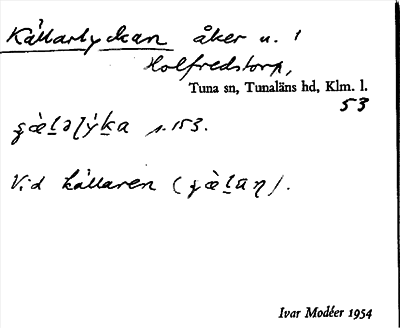 Källarlyckan åker u. 1
Holfredstorp,
Tuna sn, Tunaläns hd, Klm. l.
53
s. 153.
Vid källaren
Ivar Modéer 1954